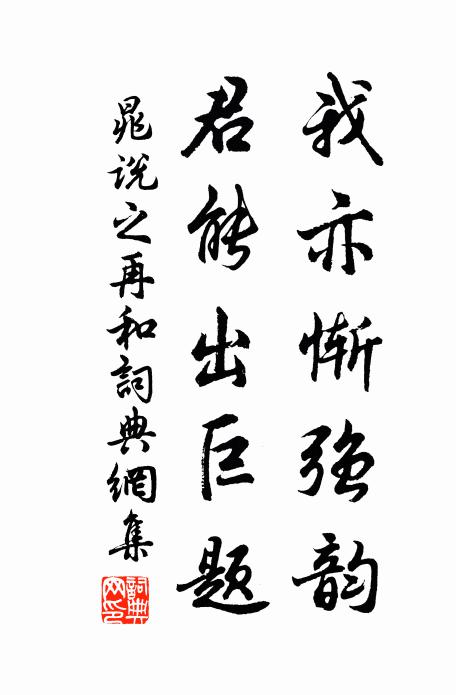 我亦惭强韵
君能出巨题
晁说之再和詞典網集
詞典网印